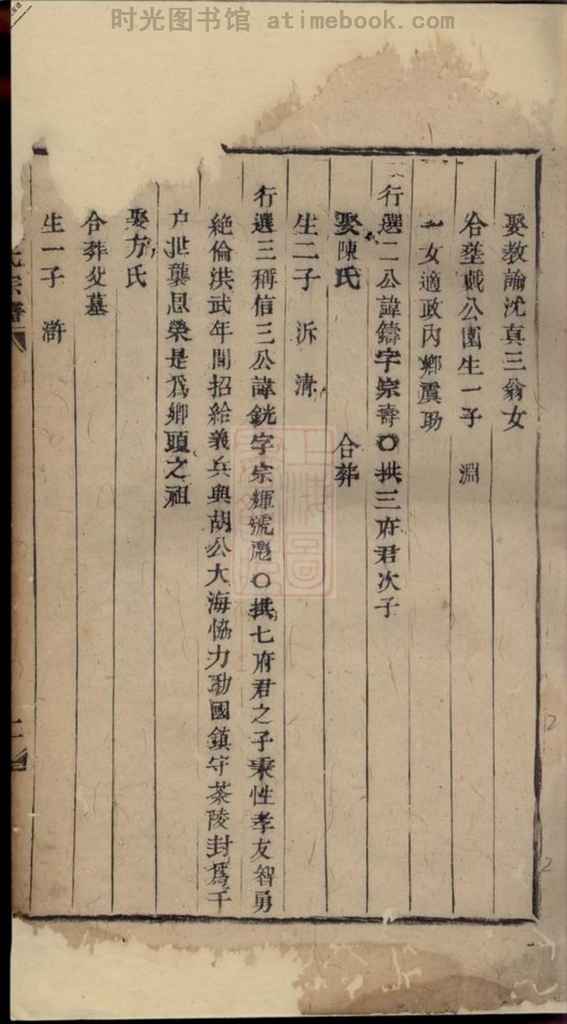 时光图书馆 atimebook.com
娶教諭沈真三翁女
合塟戴公園生一子 淵
一女適政內鄉震助
行選二公諱鑄字宗壽〇拱三府君次子
娶陳氏 合葬
生二子 泝 清
行選三稱信三公諱銧字宗輝號彪〇拱七府君之子秉性孝友智勇
絶倫洪武年間招給義兵與胡公大海恊力勷國鎮守茶陵封爲千
户世襲恩榮是爲鄉頭之祖
娶方氏
合葬父墓
生一子 滸
氏宗譜